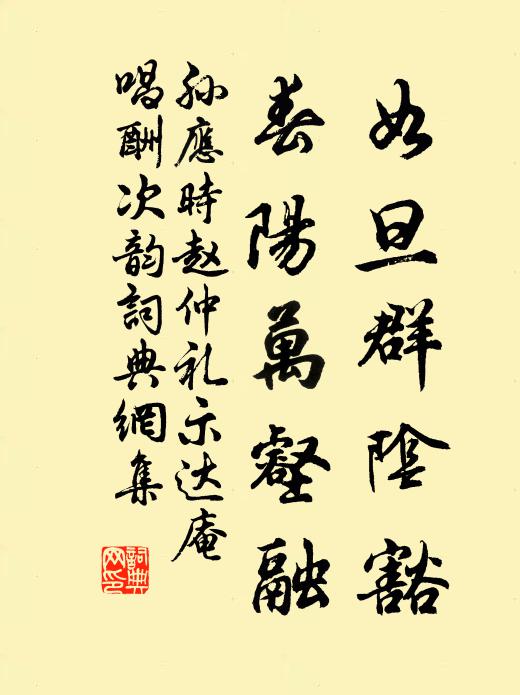 如旦群陰豁
春陽萬壑融
孙應時赵仲礼示达庵
唱酬次韵詞典網集
詞典网印